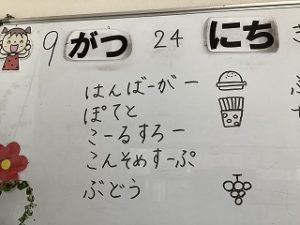 9 がつ 24 にち
はんばーがー
ぽてと
こーるすろー
こんそめすーぷ
ぶどう